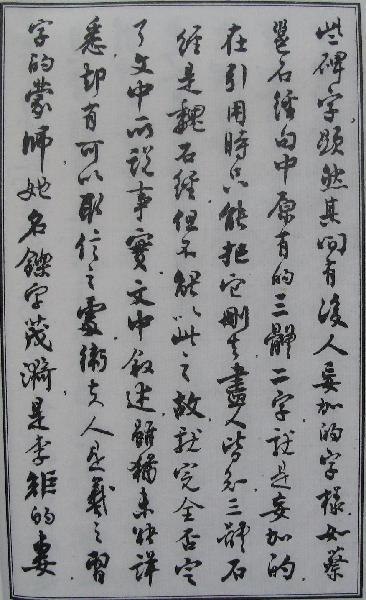 些碑字，显然其间有後人妄加的字样，如蔡
邕石经句中原有的三體二字就是妄加的，
在引用時只能把它刪去，盡人皆知三體石
经是魏石经，但不能以此之故就完全否定
了文中所说事實，文中叙述雖猶未快詳
悉，却有可以取信之處，衛夫人是羲之習
字的蒙师，她名鑠字茂漪，是李矩的妻